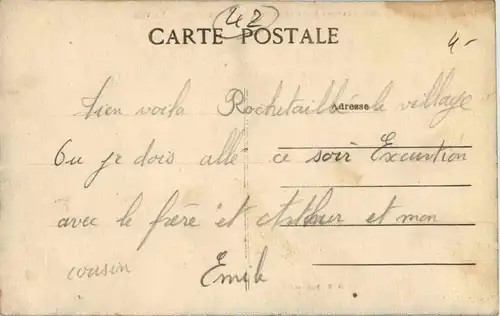 42
CARTE POSTALE
4-
Adresse
tien voila Rochetaillée le village
Ou je dois allé ce soir Excurtion
avec le frère et Arthur et mon
cousin Emile